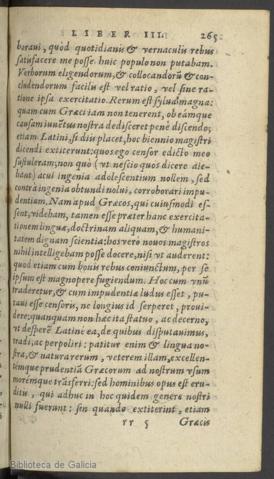 LIBER III. 265
boraui, quòd quotidianis & vernaculis rebus
satisfacere me posse huic populo non putabam.
Verborum eligendorum, & collocandorũ & con-
cludendorum facilis est vel ratio, vel sine ra-
tione ipsa exercitatio. Rerum est sylua magna:
quam cum Græci iam non tenerent, ob eamque
causam iuuẽtus nostra dedisceret penè discendo;
etiam Latini, si diis placet, hoc biennio magistri
dicendi extiterunt: quos ego censor edicto meo
sustuleram; non quò (vt nescio quos dicere aie-
bat) acui ingenia adolescentium nollem, sed
contrà ingenia obtundi nolui, corroborari impu-
dentiam. Nam apud Græcos, qui cuiusmodi es-
sent, videbam, tamen esse præter hanc exercita-
tionem linguæ, doctrinam aliquam, & humani-
tatem dignam scientia: hos verò nouos magistros
nihil intelligebam posse docere, nisi vt auderent:
quod etiam cum bonis rebus coniunctum, per se
ipsum est magnopere fugiendum. Hoc cum vnũ
traderetur, & cum impudentiæ ludus esset, pu-
taui esse censoris, ne longius id serperet, proui-
dere; quanquam non hæc ita statuo, ac decerno,
vt desperẽ Latinè ea, de quibus disputauimus,
tradi, ac perpoliri: patitur enim & lingua no-
stra, & natura rerum, veterem illam, excellen-
temque prudentiã Græcorum ad nostrum vsum
moremque trãsferri: sed hominibus opus est eru-
ditis, qui adhuc in hoc quidem genere nostri
nulli fuerunt: sin quando extiterint, etiam
rr 5 Græcis
Biblioteca de Galicia